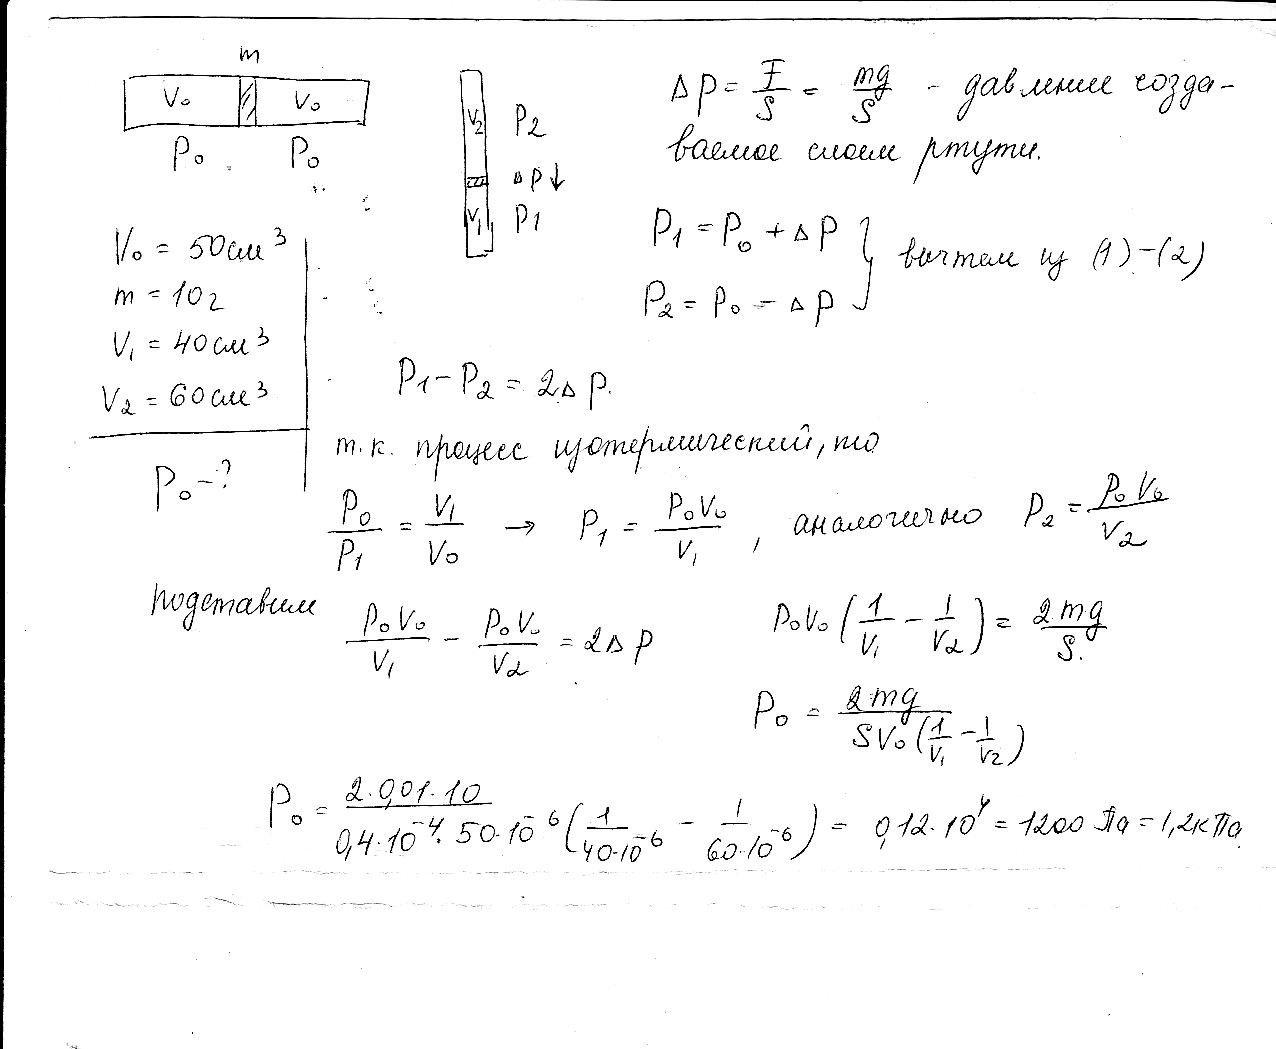 m
V₀ V₀
P₀ P₀
V₂ P₂
ΔP↓
V₁ P1
ΔP = F/S = mg/S - давление созда-
ваемое слоем ртути.
V₀ = 50см³
m = 10г
V₁ = 40см³
V₂ = 60см³
P₀ - ?
P₁ = P₀ + ΔP
P₂ = P₀ - ΔP } вычтем из (1)-(2)
P₁ - P₂ = 2ΔP.
т.к. процесс изотермический, то
P₀/P₁ = V₁/V₀ → P₁ = P₀V₀/V₁, аналогично P₂ = P₀V₀/V₂
подставим
P₀V₀/V₁ - P₀V₀/V₂ = 2ΔP
P₀V₀(1/V₁ - 1/V₂) = 2mg/S.
P₀ = 2mg/SV₀(1/V₁ - 1/V₂)
P₀ = 2·0,01·10/0,4·10⁻⁴·50·10⁻⁶(1/40·10⁻⁶ - 1/60·10⁻⁶) = 0,12·10⁴ = 1200 Па = 1,2кПа